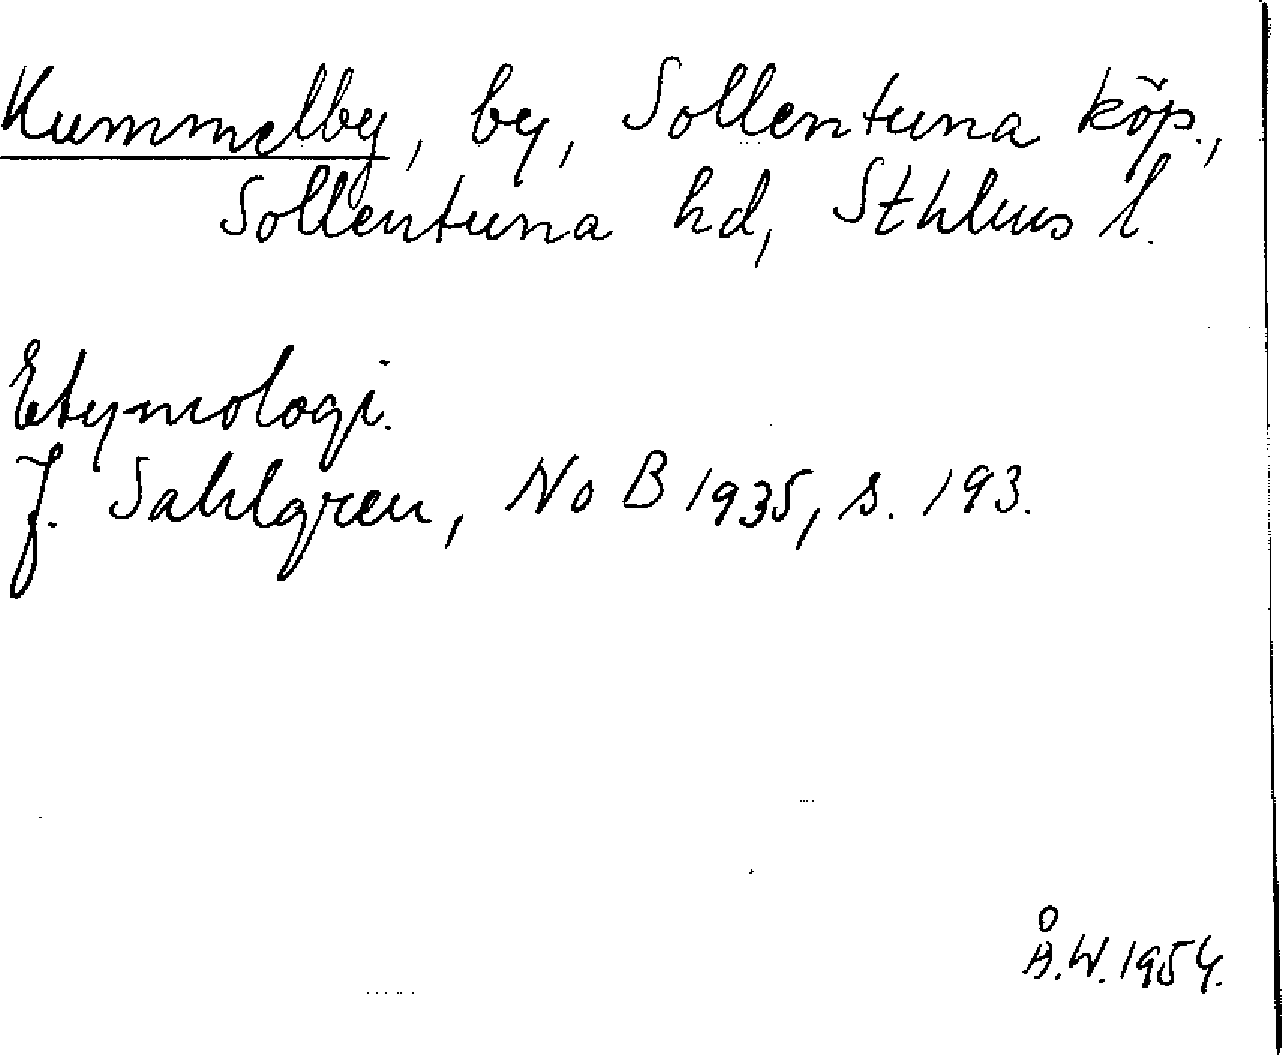 Kummelby, by, Sollentuna köp.,
Sollentuna hd, Sthlms l.
Etymologi.
J. Sahlgren, NoB 1935, s. 193.
Å.W. 1954.